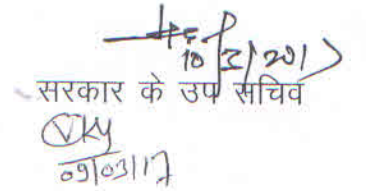 10/3/2017
सरकार के उप सचिव
09/03/17